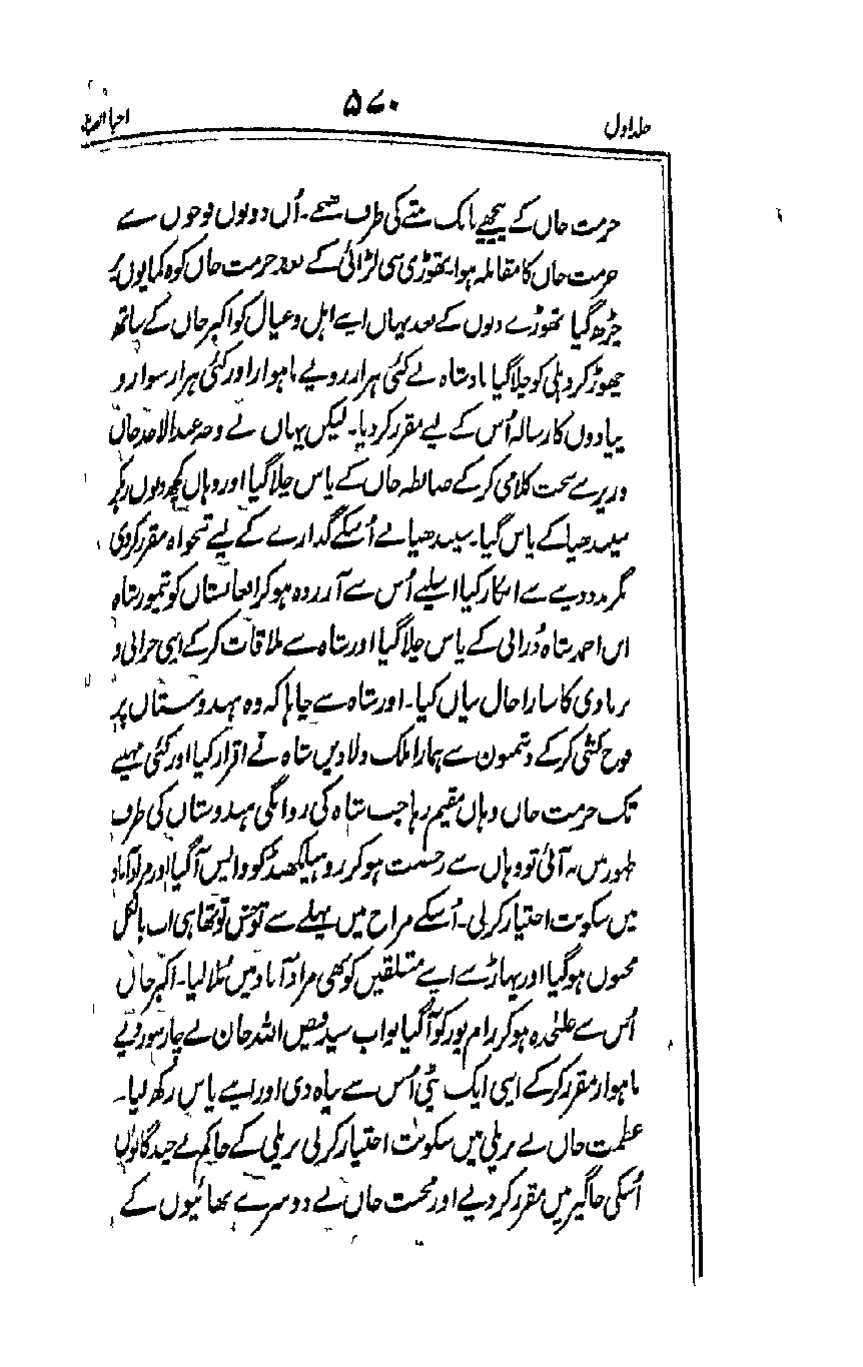 ۵۷۰
جلد اول
حرمت خاں کے پیچھے نانک متے کی طرف بھیجے۔ اُن دونوں فوجوں سے
حرمت خاں کا مقابلہ ہوا۔ تھوڑی سی لڑائی کے بعد حرمت خاں کوہ کمایوں پر
چڑھ گیا تھوڑے دنوں کے بعد یہاں اپنے اہل و عیال کو اکبر خاں کے ساتھ
چھوڑ کر دہلی کو چلا گیا بادشاہ نے کئی ہزار روپے ماہوار اور کئی ہزار سوار و
پیادوں کا رسالہ اُس کے لیے مقرر کر دیا۔ لیکن یہاں بے وجہ عبدالاحد خاں
وزیر سے سخت کلامی کر کے ضابطہ خاں کے پاس چلا گیا اور وہاں کچھ دنوں رہکر
سیندھیا کے پاس گیا۔ سیندھیا نے اُسکے گذارے کے لیے تنخواہ مقرر کردی
مگر مدد دینے سے انکار کیا اسلیے اُس سے آزردہ ہو کر افغانستان کو تیمور شاہ
ابن احمد شاہ دُرانی کے پاس چلا گیا اور شاہ سے ملاقات کر کے اپنی خرابی و
بربادی کا سارا حال بیاں کیا۔ اور شاہ سے چاہا کہ وہ ہندوستاں پر
فوج کشی کر کے دشمنوں سے ہمارا ملک دلادیں شاہ نے اقرار کیا اور کئی مہینے
تک حرمت خاں وہاں مقیم رہا جب شاہ کی روانگی ہندوستاں کی طرف
ظہور میں نہ آئی تو وہاں سے رخصت ہو کر روہیلکھنڈ کو واپس آگیا اور مرادآباد
میں سکونت اختیار کر لی۔ اُسکے مزاج میں پہلے سے توحش تو تھا ہی اب بالکل
مجنوں ہو گیا اور پہاڑ سے اپنے متعلقین کو بھی مرادآباد میں بُلا لیا۔ اکبر خاں
اُس سے علٰحدہ ہو کر رام پور کو آگیا نواب سید فیض اللہ خان نے چار سو روپے
ماہوار مقرر کر کے اپنی ایک بیٹی اُس سے بیاہ دی اور اپنے پاس رکھ لیا۔
عظمت خاں نے بریلی میں سکونت اختیار کر لی بریلی کے حاکم نے چند گانوں
اُسکی جاگیر میں مقرر کر دیے اور محبت خاں نے دوسرے بھائیوں کے